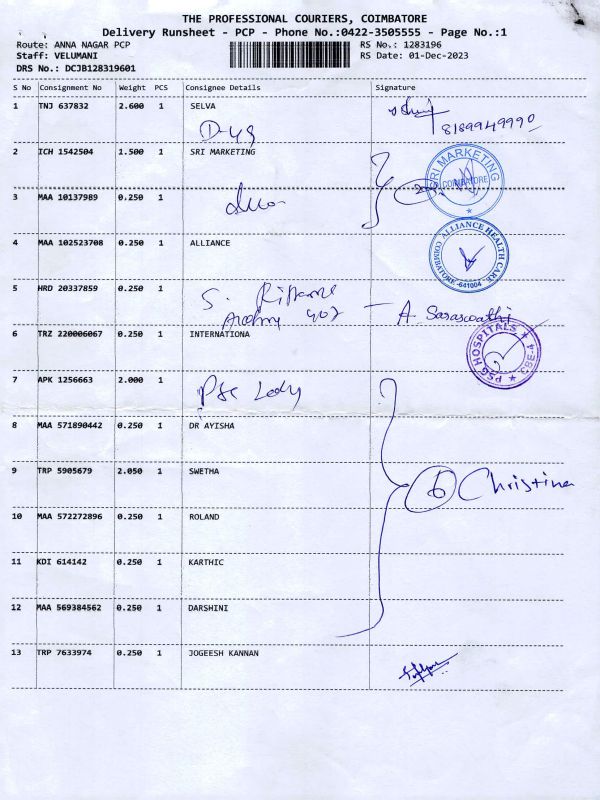 THE PROFESSIONAL COURIERS, COIMBATORE
Delivery Runsheet - PCP - Phone No.:0422-3505555 - Page No.:1
Route: ANNA NAGAR PCP
RS No.: 1283196
Staff: VELUMANI
RS Date: 01-Dec-2023
DRS No.: DCJB128319601
S No Consignment No Weight PCS Consignee Details Signature
1 TNJ 637832 2.600 1 SELVA
8189949990
2 ICH 1542504 1.500 1 SRI MARKETING
SRI MARKETING
COIMBATORE
3 MAA 10137989 0.250 1
4 MAA 102523708 0.250 1 ALLIANCE
ALLIANCE HEALTH CARE
COIMBATORE -641004
5 HRD 20337859 0.250 1
S.
907 A. Saraswathi
6 TRZ 220006067 0.250 1 INTERNATIONA
PSG HOSPITALS
CBE-4
7 APK 1256663 2.000 1
8 MAA 571890442 0.250 1 DR AYISHA
9 TRP 5905679 2.050 1 SWETHA
6 Christina
10 MAA 572272896 0.250 1 ROLAND
11 KDI 614142 0.250 1 KARTHIC
12 MAA 569384562 0.250 1 DARSHINI
13 TRP 7633974 0.250 1 JOGEESH KANNAN